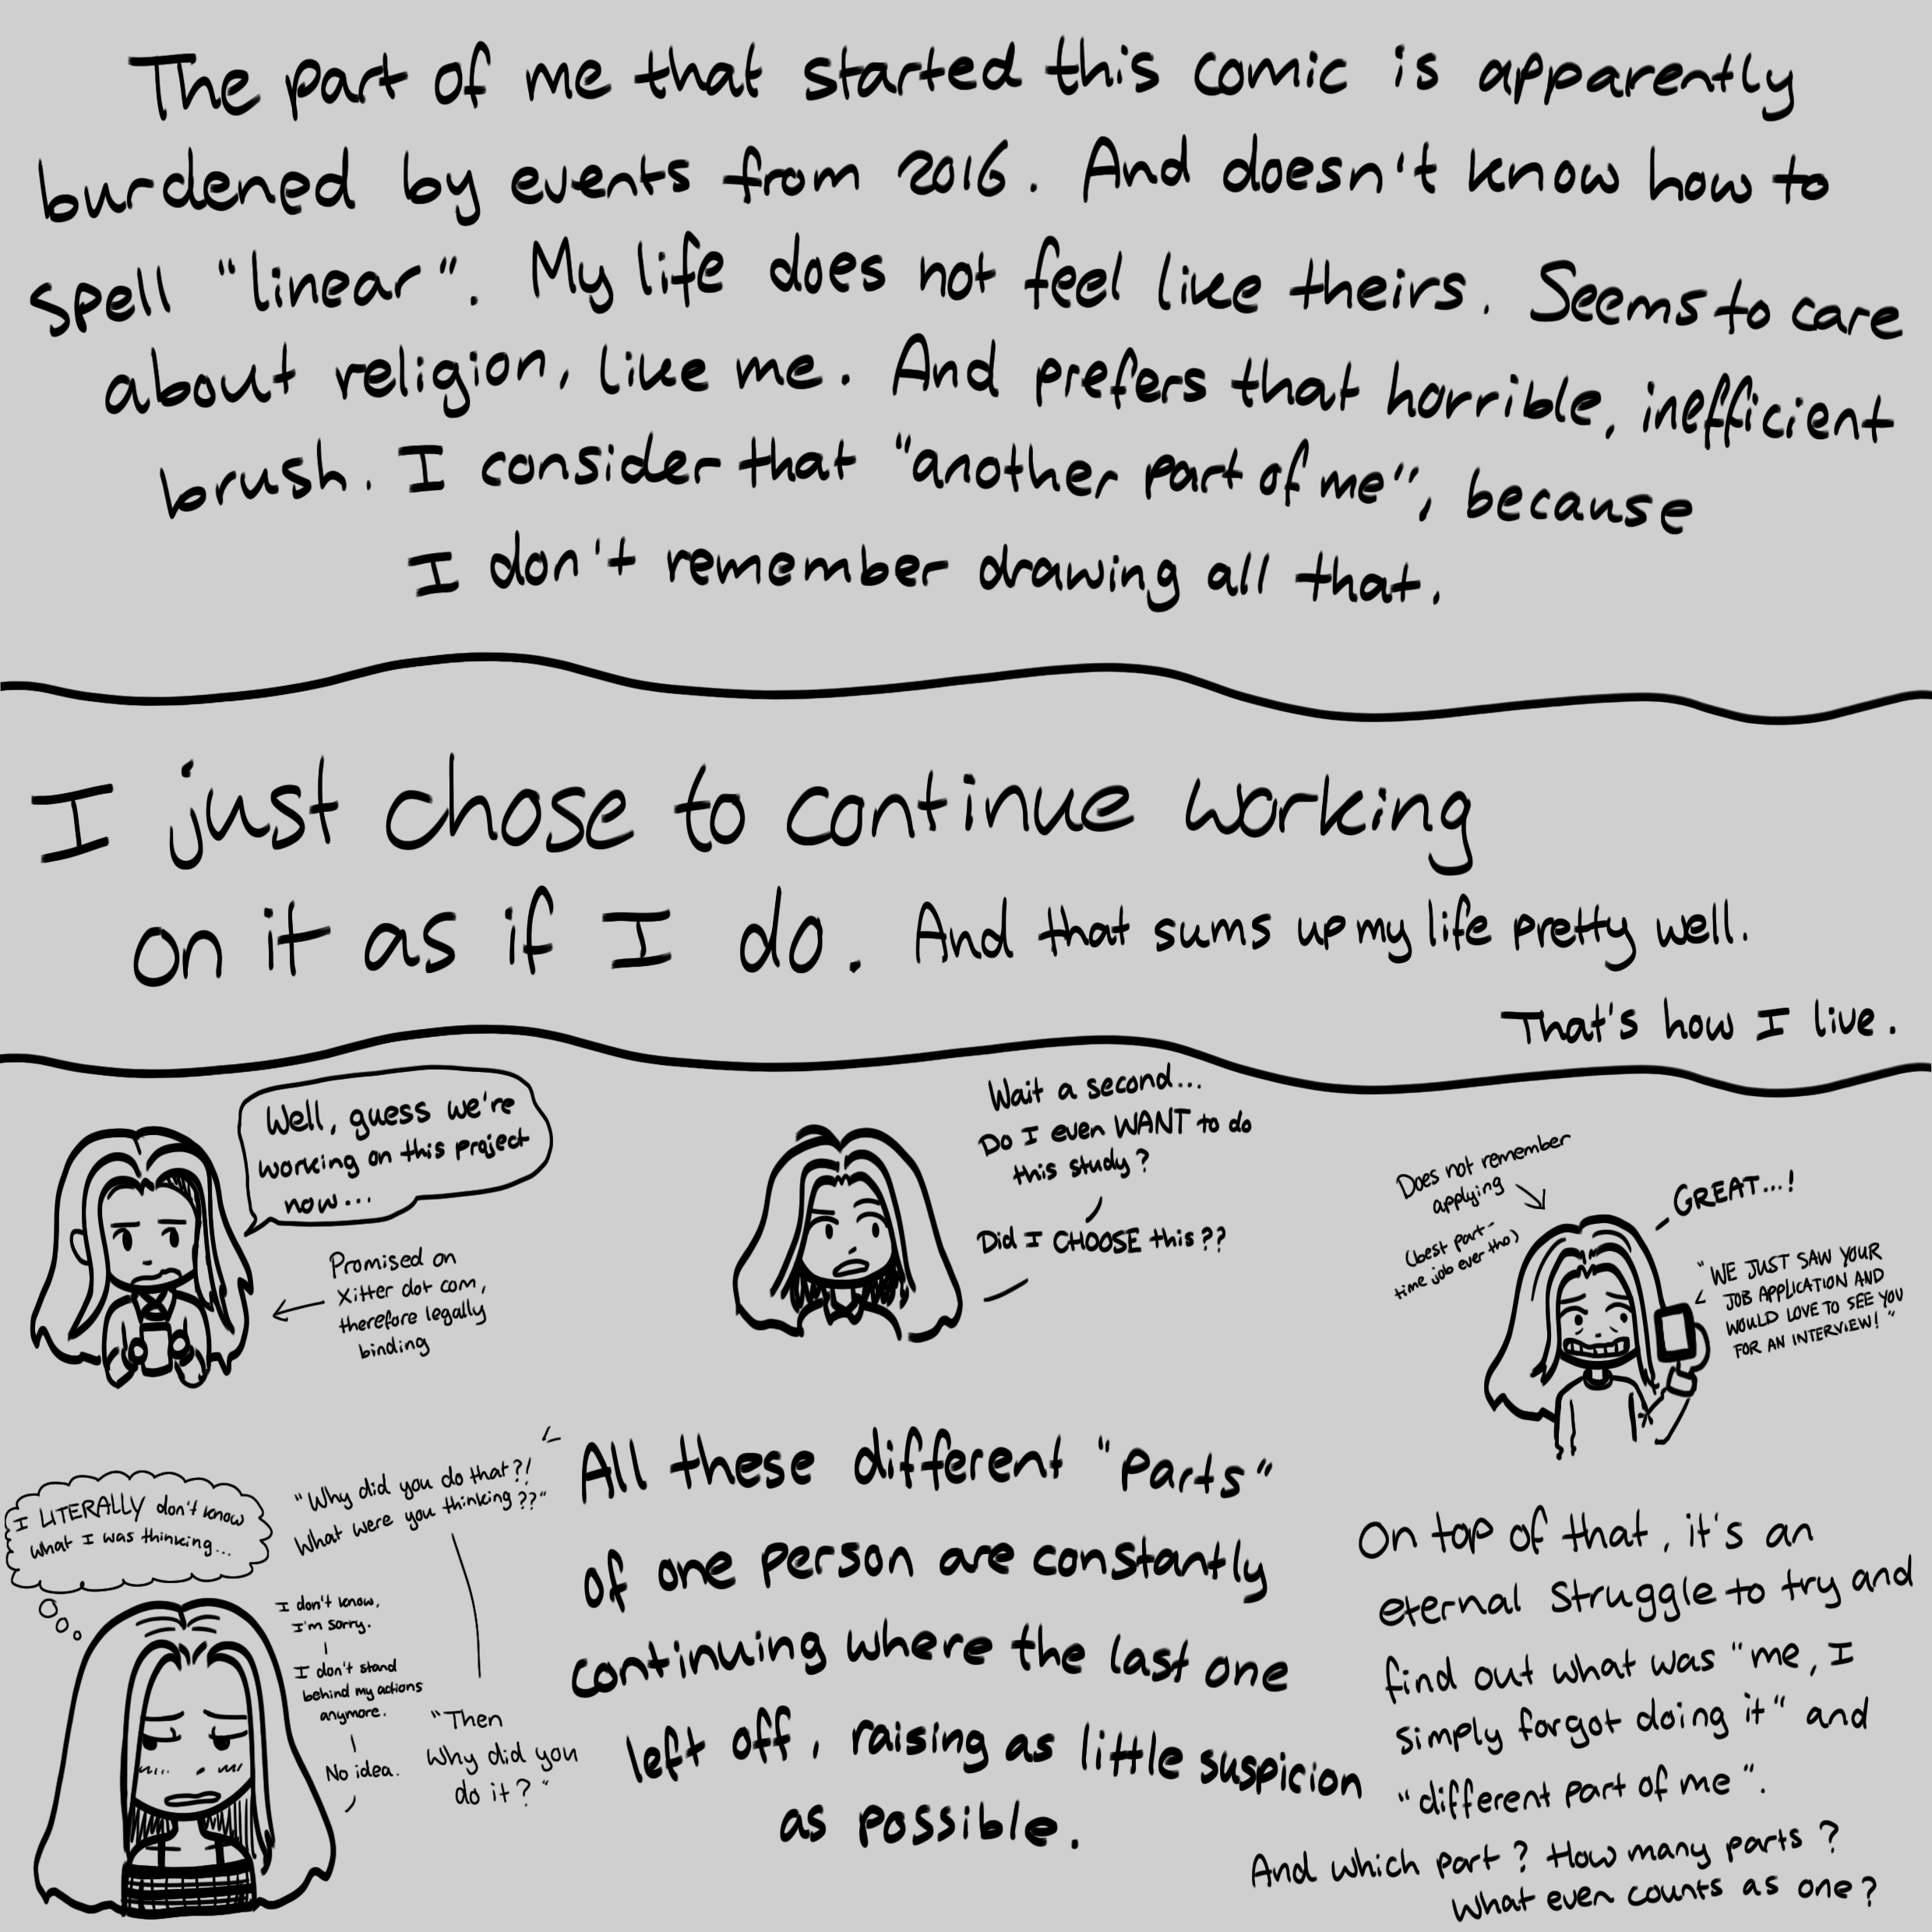 The part of me that started this comic is apparently
burdened by events from 2016. And doesn't know how to
spell "linear". My life does not feel like theirs. Seems to care
about religion, like me. And prefers that horrible, inefficient
brush. I consider that "another part of me", because
I don't remember drawing all that.
I just chose to continue working
on it as if I do. And that sums up my life pretty well.
That's how I live.
Well, guess we're
working on this project
now...
Promised on
Xitter dot com,
therefore legally
binding
Wait a second...
Do I even WANT to do
this study?
Did I CHOOSE this??
Does not remember
applying
(best part-
time job ever tho)
GREAT...!
"WE JUST SAW YOUR
JOB APPLICATION AND
WOULD LOVE TO SEE YOU
FOR AN INTERVIEW!"
I LITERALLY don't know
what I was thinking...
"Why did you do that?!
What were you thinking??"
I don't know,
I'm sorry.
I don't stand
behind my actions
anymore.
"Then
why did you
do it?"
No idea.
All these different "parts"
of one person are constantly
continuing where the last one
left off, raising as little suspicion
as possible.
On top of that, it's an
eternal struggle to try and
find out what was "me, I
simply forgot doing it" and
"different part of me".
And which part? How many parts?
What even counts as one?